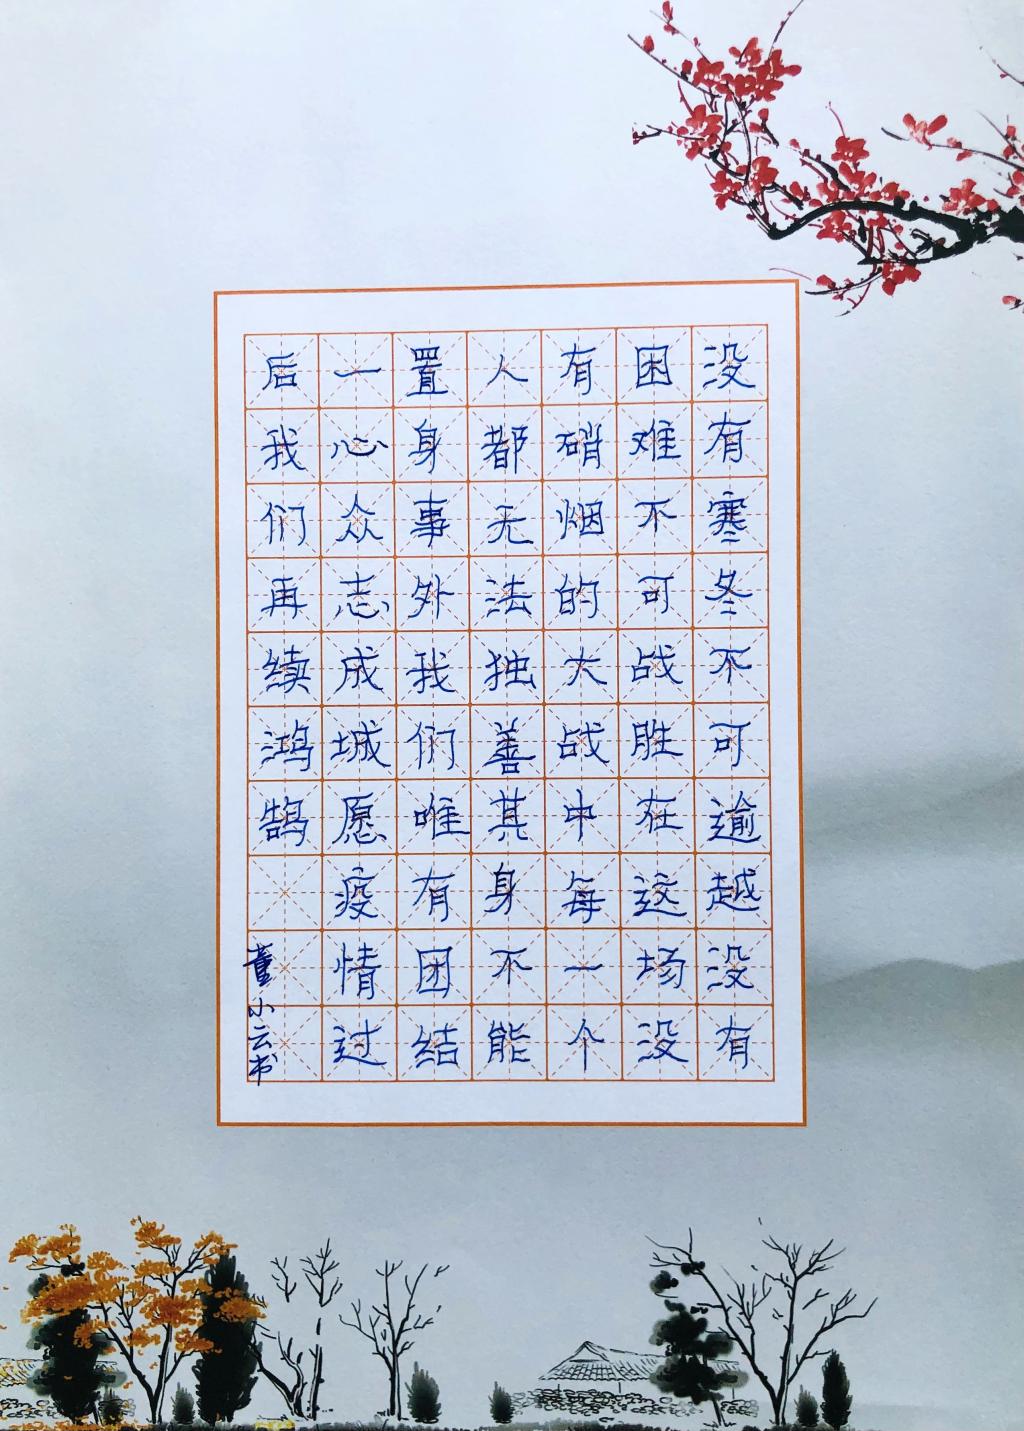 没有寒冬不可逾越没有
困难不可战胜在这场没
有硝烟的大战中每一个
人都无法独善其身不能
置身事外我们唯有团结
一心众志成城愿疫情过
后我们再续鸿鹄
董小云书